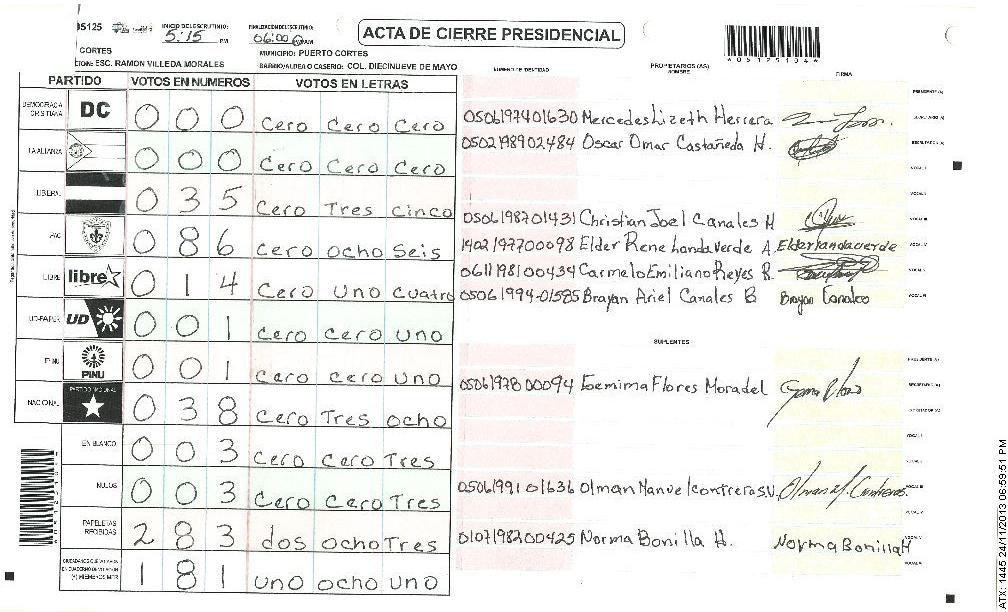 05125 INICIO DEL ESCRUTINIO: 5:15 PM FINALIZACION DEL ESCRUTINIO: 06:00 PM
ACTA DE CIERRE PRESIDENCIAL
CORTES MUNICIPIO: PUERTO CORTES
ESC. RAMON VILLEDA MORALES BARRIO/ALDEA O CASERIO: COL. DIECINUEVE DE MAYO
*05125104*
NUMERO DE IDENTIDAD PROPIETARIOS (AS) NOMBRE FIRMA
PARTIDO VOTOS EN NUMEROS VOTOS EN LETRAS
PRESIDENTE (A)
DEMOCRACIA CRISTIANA DC 0 0 0 Cero Cero Cero
0506197401630 Mercedes Lizeth Herrera SECRETARIO (A)
LA ALIANZA 0 0 0 Cero Cero Cero
0502198902484 Oscar Omar Castañeda H. ESCRUTADOR (A)
VOCAL I
LIBERAL 0 3 5 Cero Tres cinco
VOCAL II
0506198701431 Christian Joel Canales H VOCAL III
PAC 0 8 6 Cero ocho Seis
1402197700098 Elder Rene Landaverde A. Elderlandaverde VOCAL IV
LIBRE libre 0 1 4 Cero uno cuatro
0611198100434 Carmelo Emiliano Reyes R. VOCAL V
05061994-01585 Brayan Ariel Canales B Brayan Canales VOCAL VI
UD-FAPER UD 0 0 1 Cero cero uno
SUPLENTES
PINU PINU 0 0 1 Cero cero uno
PRESIDENTE (A)
0506197800094 Gemima Flores Moradel SECRETARIO (A)
NACIONAL PARTIDO NACIONAL 0 3 8 Cero Tres ocho
ESCRUTADOR (A)
VOCAL I
EN BLANCO 0 0 3 Cero cero Tres
VOCAL II
NULOS 0 0 3 Cero cero Tres
0506199101636 Olman Manuel contreras V. Olman M. Contreras VOCAL III
PAPELETAS RECIBIDAS 2 8 3 dos ocho Tres
0107198200425 Norma Bonilla H. Norma Bonilla H VOCAL V
CIUDADANOS QUE VOTARON EN CUADERNO DE VOTACION (+) MIEMBROS MER 1 8 1 uno ocho uno
VOCAL VI
ATX: 1445 24/11/2013 06:59:51 PM